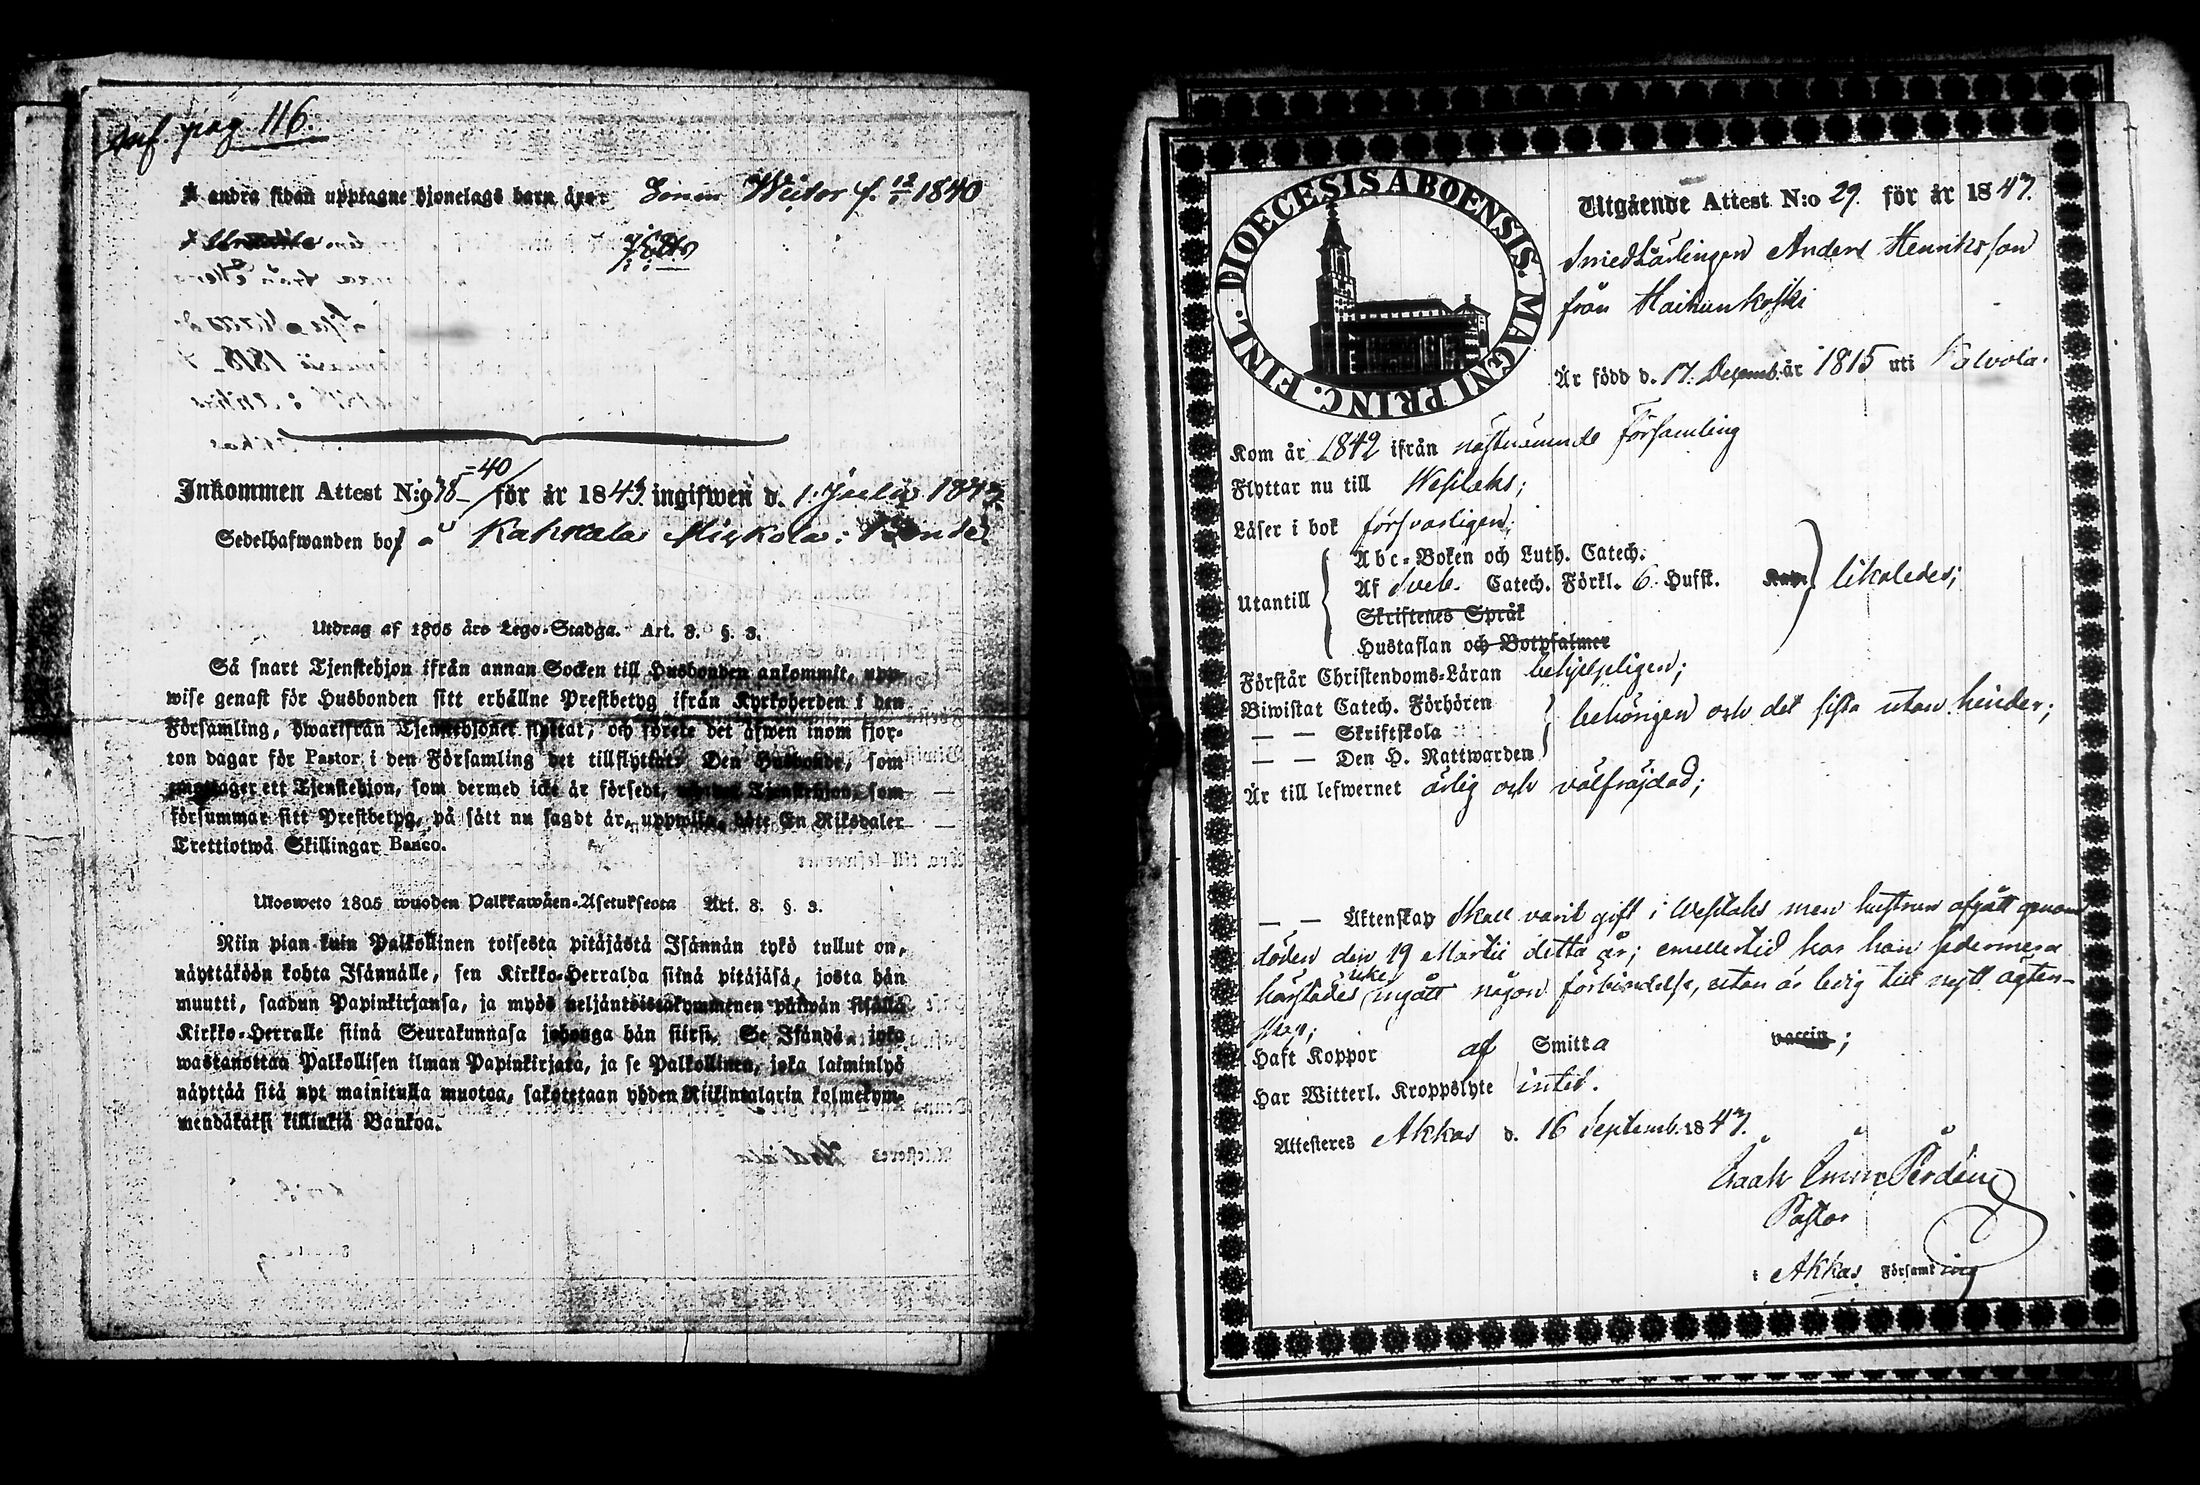 Inf. pag. 116.
Å andra sidan upptagne hjonelags barn äro: Sonen Victor f. 12 1840
Inkommen Attest N:o 38=40 för år 1843 ingifwen d. 1 Julii 1843
Sedelhafwanden bor å Kahrala Bonde
Utdrag af 1805 års Lego-Stadga. Art. 8. §. 3.
Så snart Tjenstehjon ifrån annan Socken till Husbonden ankommit, upp-
wise genast för Husbonden sitt erhållne Prestbetyg ifrån Kyrkoherden i den
Församling, hwarifrån Tjenstehjonet flyttat, och förete det äfwen inom fjor-
ton dagar för Pastor i den Församling det tillflyttat. Den Husbonde, som
emottager ett Tjenstehjon, som dermed icke är försedt, Tjenstehjon, som
försummar sitt Prestbetyg, på sätt nu sagdt är, uppwisa, böte En Riksdaler
Trettiotwå Skillingar Banco.
Ulosweto 1805 wuoden Palkkawäen-Asetuksesta Art. 8. §. 3.
Niin pian kuin Palkollinen toisesta pitäjästä Isännän tykö tullut on,
näyttäköön kohta Isännälle, sen Kirkko-Herralda siinä pitäjäsä, josta hän
muutti, saadun Papinkirjansa, ja myös neljäntoistakymmenen päiwän sisällä
Kirkko-Herralle siinä Seurakunnasa johonga hän siirsi. Se Isändä, joka
wastanottaa Palkollisen ilman Papinkirjata, ja se Palkollinen, joka laiminlyö
näyttää sitä nyt mainitulla muotoa, sakotetaan yhden Riikintalarin kolmekym-
mendäkaksi killinkiä Bankoa.
DIOECESIS ABOENSIS. MAGNI PRINC. FINL.
Utgående Attest N:o 29. för år 1847.
Smedkärlingen Anders Henriksson
från Haihunkoski
Är född d. 17. Decemb. år 1815 uti Kalvola.
Kom år 1842 ifrån nästnämnde Församling
Flyttar nu till Wesilaks;
Läser i bok försvarligen;
Utantill
Abc-Boken och Luth. Catech.
Af Sveb. Catech. Förkl. 6 Hufst. Kap. likaledes;
Skriftenes Språk
Hustaflan och Botpsalmer
Förstår Christendoms-Läran behjelpligen;
Biwistat Catech. Förhören
— — Skriftskola
— — Den H. Nattwarden
behörigen och det sista utan hinder;
Är till lefwernet ärlig och välfräjdad;
— — Äktenskap Skall varit gift i Wesilaks men hustrun afgått genom
döden den 19 Martii detta år; emellertid har han sedermera
härstädes icke ingått någon förbindelse, utan är ledig till nytt ägten-
skap;
Haft Koppor af Smitta vaccin;
Har Witterl. Kroppslyte intet.
Attesteres Akkas d. 16 Septemb. 1847.
Pastor
i Akkas Församling